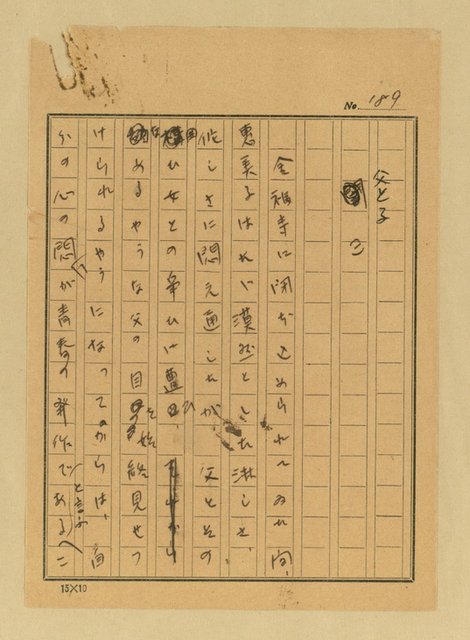 No. 189
父と子
三
金福寺に閉ぢ込められてゐた間、
恵美子はたゞ漠然とした淋しさ、
佗しさに悶え通したが 父とその
女との争ひに遭ひ、
めるやうな父の目を始終見せつ
けられるやうになってからは、自
分の心の悶が青春の発作であると言ふこ
15×10